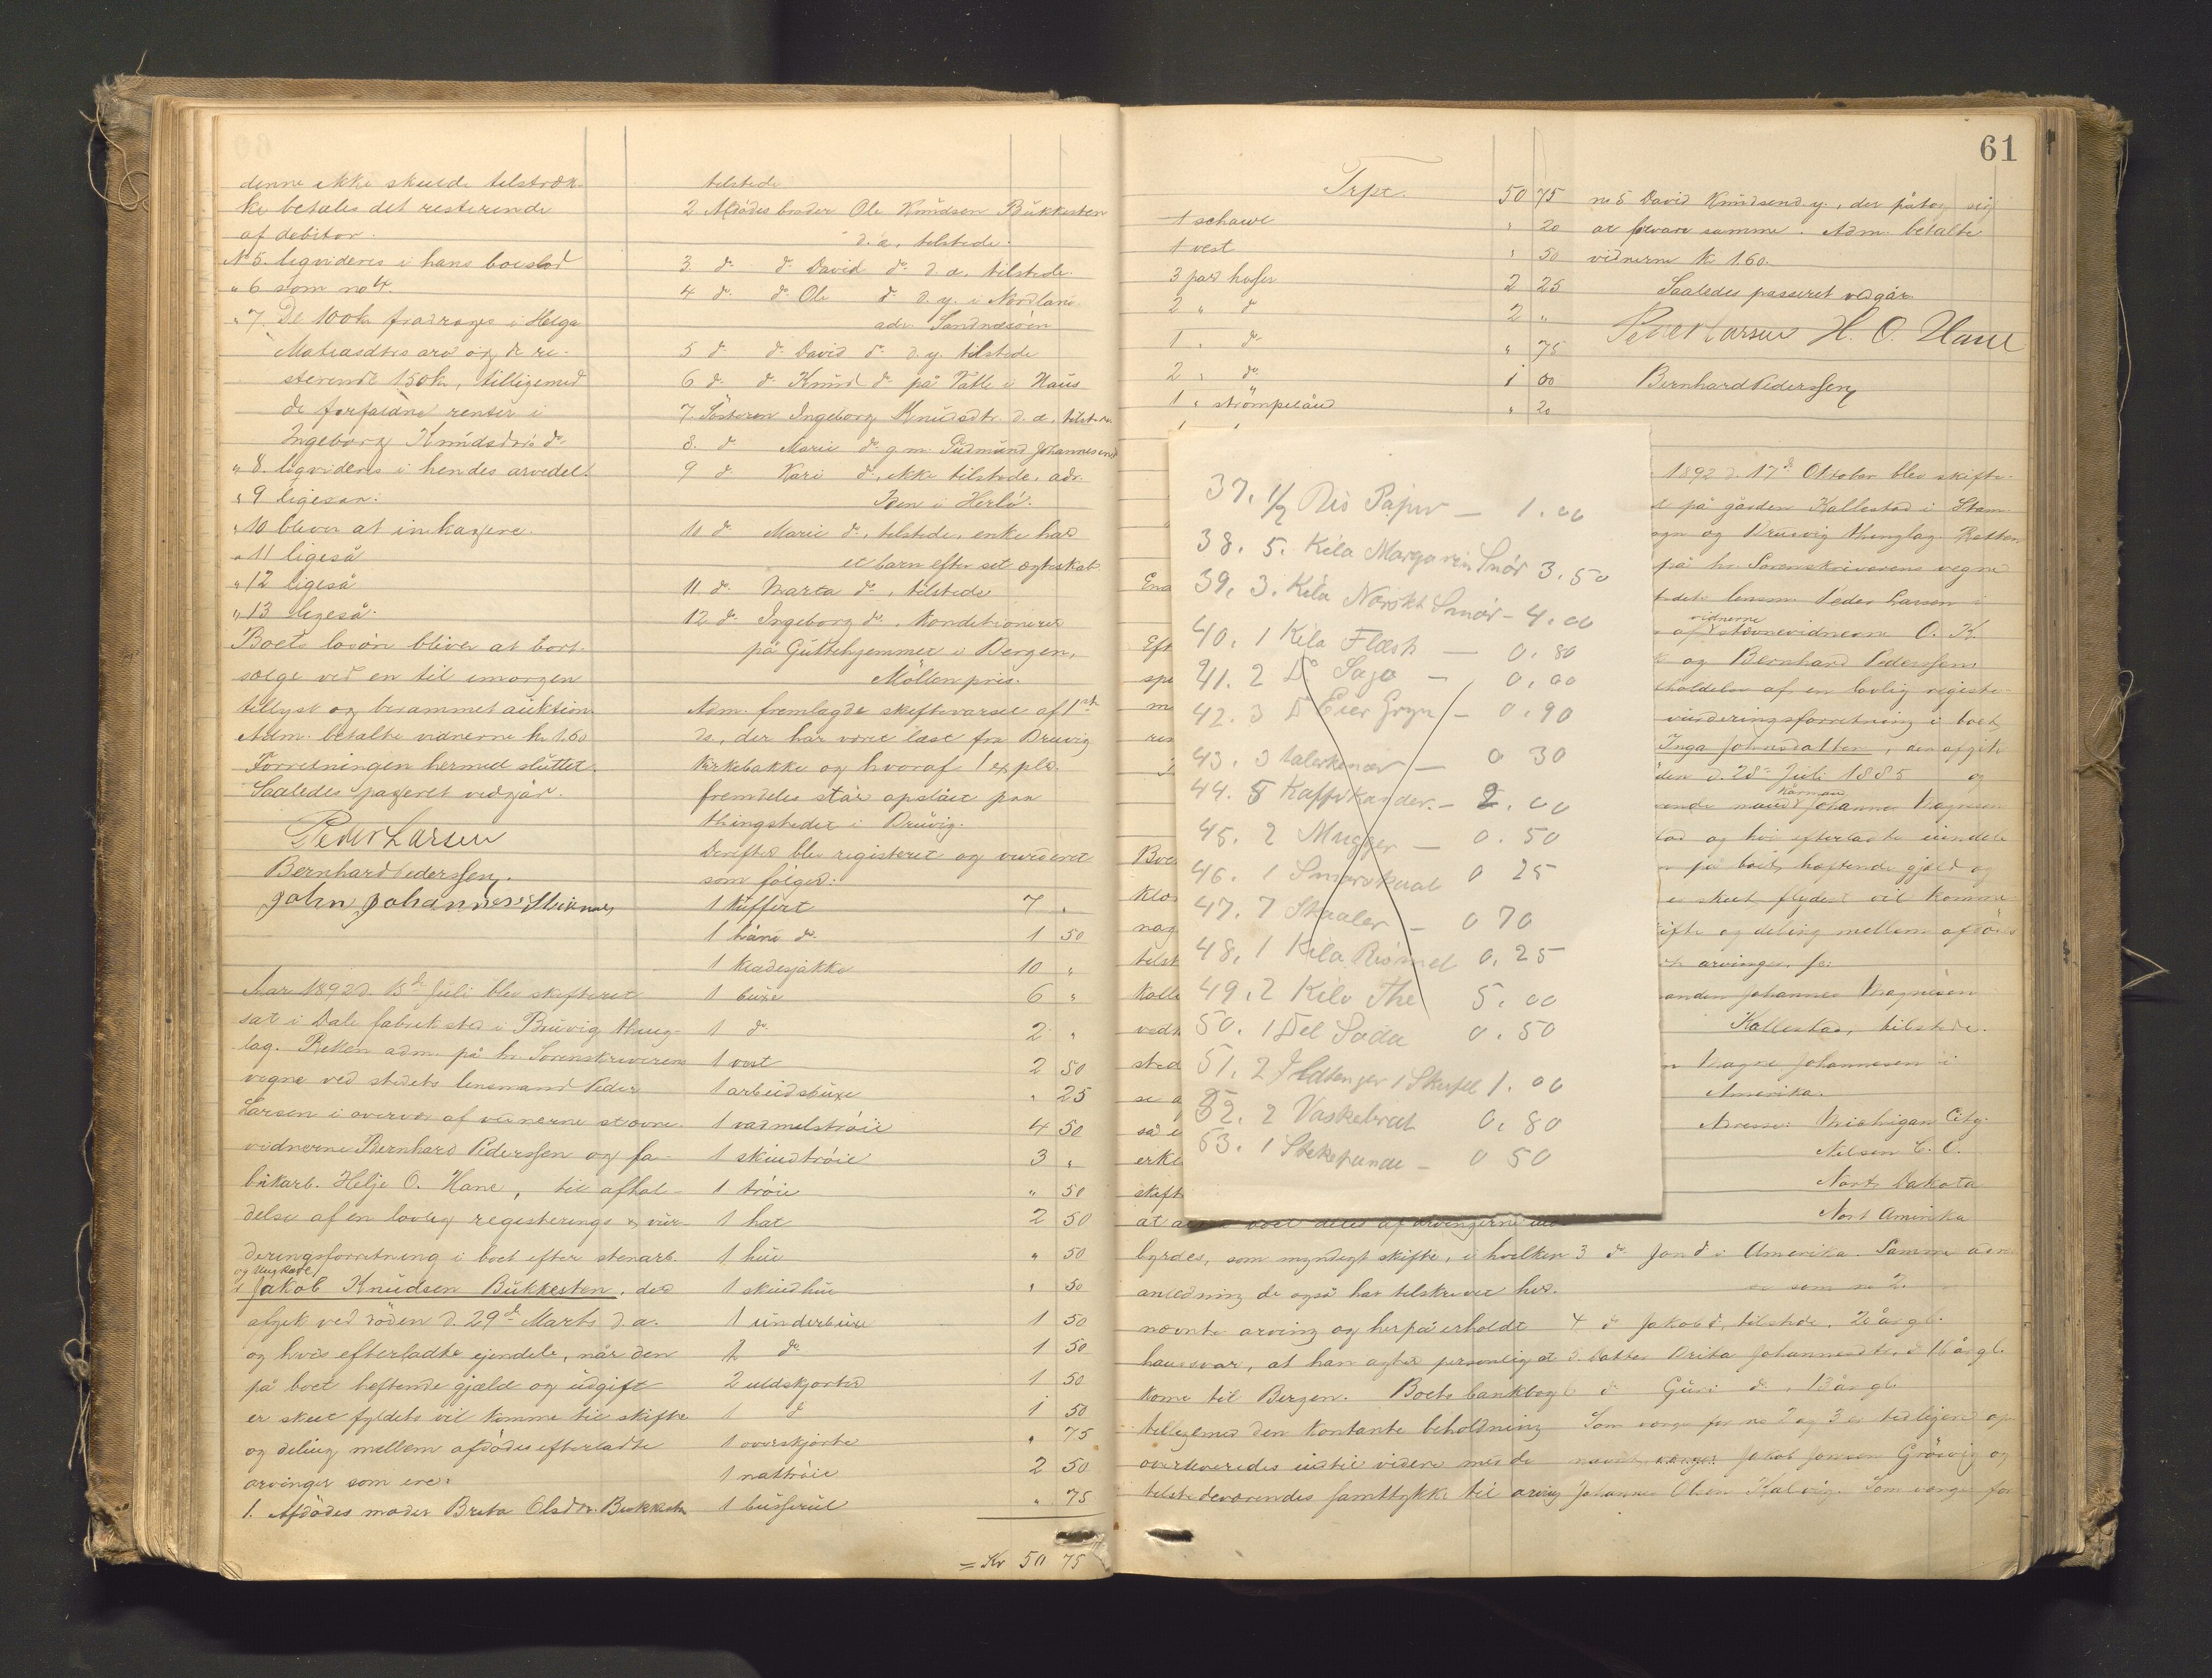 denne ikke skulde tilstræk-
ke betales det resterende
af debitor.
No 5. liqvideres i hans boeslod
" 6 som no 4.
" 7. De 100 kr fradrages i Helga
arv og de re-
sterende 150 kr, tilligemed
de forfaldne renter i
Ingeborg Knudsdtrs do
" 8. liqvideres i hendes arvedel.
" 9 ligesaa.
" 10 bliver at inkassere.
" 11 ligeså
" 12 ligeså
" 13 ligeså.
Boets løsøre bliver at bort-
sælge ved en til imorgen
tillyst og berammet auktion.
Adm. betalte vidnerne kr 1.60
Forretningen hermed sluttet.
Saaledes passeret vedgår.
Peder Larsen
Bernhard Pederssen.
John Johannesen
Aar 1892 d. 15de Juli blev skifteret
sat i Dale fabriksted i Bruvig thing-
lag. Retten adm. på hr Sorenskriverens
vegne ved stedets lensmand Peder
Larsen i overvær af vidnerne stævne-
vidnerne Bernhard Pederssen og fa-
brikarb. Helje O. Hane, til afhol-
delse af en lovlig registerings & vur-
deringsforretning i boet efter stenarb.
og Ungkarl
Jakob Knudsen Bukkesten, der
afgik ved døden d. 29de Marts d.a.
og hvis efterladte ejendele, når den
på boet heftende gjæld og udgift
er skeet fyldest vil komme til skifte
og deling mellem afdødes efterladte
arvinger som ere:
1. Afdødes moder Brita Olsdtr. Bukkesten
tilstede
2 Afdødes broder Ole Knudsen Bukkesten
d.æ. tilstede.
3 do do David do d.æ. tilstede.
4 do do Ole do d.y. i Nordland.
adr. Sandnæsøen
5 do do David do d.y. tilstede
6 do do Knud do på Vatle i Haus
7. Søsteren Ingeborg Knudsdtr. d.æ. tilstede
8. do Marie do g.m. Gudmund Johannesen
9 do Kari do, ikke tilstede, adr.
i Herlø.
10 do Marie do, tilstede, enke har
et barn efter sit ægteskab
11 do Marta do, tilstede
12 do Ingeborg do, konditionerer
på Guttehjemmet i Bergen,
Møllenpris.
Adm. fremlagde skiftevarsel af 1ste
ds, der har været læst fra Bruvig
kirkebakke og hvoraf 1 expld.
fremdeles står opslået paa
thingstedet i Bruvig.
Derefter blev registeret og vurderet
som følger:
1 kuffert 7 "
1 do 1 50
1 klædesjakke 10 "
1 buxe 6 "
1 do 2 "
1 vest 2 50
1 arbeidsbuxe " 25
1 vadmelstrøie 4 50
1 skindtrøie 3 "
1 trøie " 50
1 hat 2 50
1 hue " 50
1 skindhue " 50
1 underbuxe 1 50
2 do 1 50
2 uldskjorter 1 50
1 do 1 50
1 overskjorte " 75
1 nattrøie 2 50
1 busserul " 75
= Kr 50 75
61
Trpt. 50 75
1 schawl " 20
1 vest " 50
3 par hoser 2 25
2 " do 2 "
1 " do " 75
2 " do 1 00
1 " " 20
no 5 David Knudsen d.y., der påtog sig
at forvare samme. Adm. betalte
vidnerne kr 1.60.
Saaledes passeret vedgår
Peder Larsen H. O. Hane
Bernhard Pederssen
37. 1/2 Ris Papir — 1.00
38. 5. Kila Margarin Smør 3.50
39. 3. Kila Norskt Smør - 4.00
40. 1 Kila Flæsk — 0.80
41. 2 Do Sago - 0.00
42. 3 Do Eier Gryn - 0.90
43. 3 talerkener — 0 30
44. 5 Kaffekander. - 2.00
45. 2 Mugger — 0.50
46. 1 Smørskaal 0 25
47. 7 Skaaler — 0 70
48. 1 Kila Rismel 0.25
49. 2 Kilo The 5.00
50. 1 Del Soda 0.50
51. 2 Ildtenger 1 Skuffel 1.00
52. 2 Vaskebræt 0.80
53. 1 Stekepande - 0 50
1892 d. 17de Oktober blev skifte-
på gården Kallestad i Stam-
og Bruvig thinglag. Retten
på hr Sorenskriverens vegne
lensm. Peder Larsen i
vidnerne
af stævnevidnerne O. K.
og Bernhard Pederssen
af en lovlig registe-
vurderingsforretning i boet
Inga Johnsdatter, der afgik
d. 28de Juli 1885 og
Johannes Magnesen
og hvis efterladte eiendele
på boet heftende gjæld og
er skeet fyldest vil komme
og deling mellem afdødes
arvinger.
Johannes Magnesen
Kallestad, tilstede.
Magne Johannesen i
Amerika.
Adresse: Michigan City
Nelson C. O.
Nort Dakota
Nort Amerika
byrdes, som myndigt skifte, i hvilken
anledning de også har tilskrevet her-
nævnte arving og herpå erholdt
hans svar, at han agter personlig at
kome til Bergen. Boets bankbog
tilligemed den kontante beholdning
overleveredes indtil videre med de
tilstedeværendes samtykke til arving
3 do Jon do i Amerika. Samme adr.
som no 2.
4 do Jakob do, tilstede, 20 år gl.
5. Datter Brita Johannesdtr. 16 år gl.
6 do Guri do, 13 år gl.
Som verge for no 2 og 3 er tidligere op-
nævnt Jakob Jonsen og
Johannes Olsen Kalvig. Som verge for